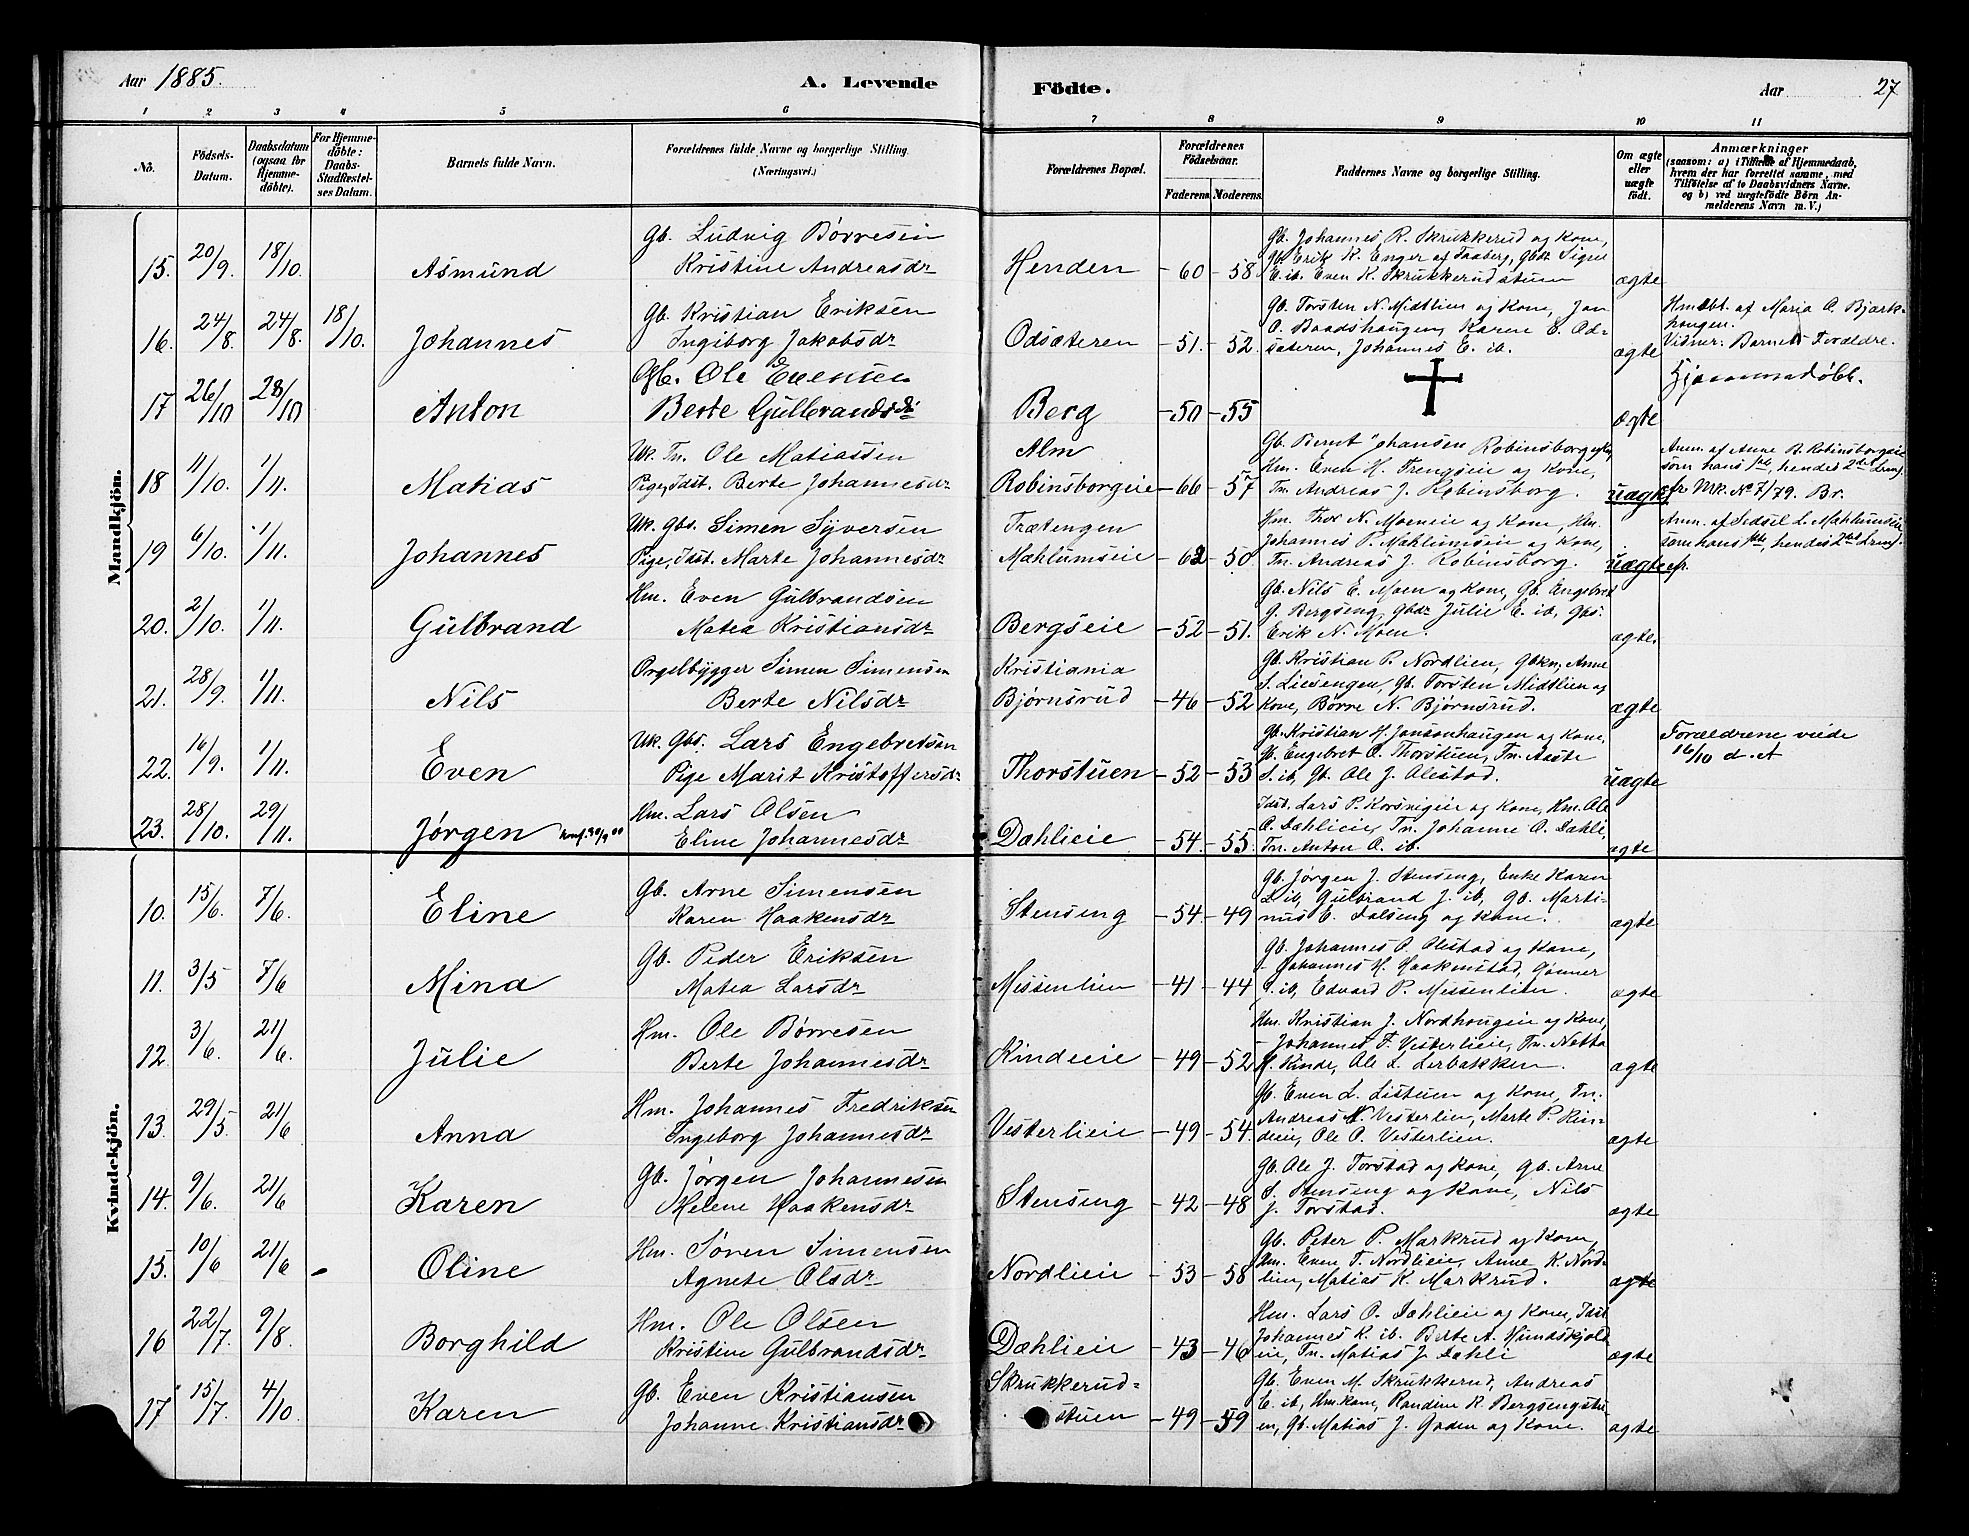 Aar 1885.
A. Levende
Födte.
Aar
27
1
2
3
4
5
6
7
8
9
10
11
No.
Födsels-Datum.
Daabsdatum (ogsaa for Hjemmedöbte).
For Hjemmedöbte: Daabs-Stadfæstelses Datum.
Barnets fulde Navn.
Forældrenes fulde Navne og borgerlige Stilling. (Næringsvei.)
Forældrenes Bopæl.
Forældrenes Födselsaar.
Faderens
Moderens.
Faddernes Navne og borgerlige Stilling.
Om ægte eller uægte födt.
Anmærkninger
(saasom: a) i Tilfælde af Hjemmedaab, hvem der har forrettet samme, med Tilföielse af to Daabsvidners Navne. og b) ved uægtefödte Börn Anmelderens Navn m. V.)
Mandkjön.
15. 20/9. 18/10. Asmund
Gb. Ludvig Børresen
Kristine Andreasdr
Henden -60 -58.
Gb. Johannes R. Skrukkerud og Kone,
Gb. Erik K. Enger af Faaberg, Gbdr Signe
E. ib. Even K. Skrukkerudstuen
ægte
16. 24/8. 24/8. 18/10. Johannes
Gb. Kristian Eriksen
Ingiborg Jakobsdr
Odsæteren -51. -52.
Gb. Torsten N. Midtlien og Kone, Jan
O. Baadshaugen, Karen E. Od-
sæteren, Johannes E. ib.
ægte
Hmdbt. af Maria O. Bjørk-
haugen.
Vidner: Barnets Forældre.
17 26/10 28/10 Anton
Gb. Ole Evensen
Berte Gulbrandsdr
Berg -50 -55
ægte
Hjemmedøbt.
18 11/10. 1/11. Matias
Uk. Tn. Ole Matiassen
Pige, Idst. Berte Johannesdr
Alm
Robinsborgeie -66 -57
Gb. Bernt Johansen Robinsborg
Hm. Even H. Trengseie og Kone,
Tn. Andreas J. Robinsborg.
uægte
Anm. af Anne R. Robinsborgeie
som hans 1ste, hendes 2det Leierm.
fr Mk. No 7/79. Br.
19 6/10. 1/11. Johannes
Uk. Gbs. Simen Syversen
Pige, Idst. Marte Johannesdr
Trætengen
Mæhlumseie -62 -50
Hm. Thor N. Moeneie og Kone, Hm.
Johannes P. Mæhlumseie og Kone,
Tn. Andreas J. Robinsborg.
uægte
Anm. af Sidsel L. Mæhlumseie
som hans 1ste, hendes 2det Leierm.
20. 2/10. 1/11. Gulbrand
Hm. Even Gulbrandsen
Matea Kristiansdr
Bergseie -52 -51.
Gb. Nils E. Moen og Kone, Gb. Engebret
G. Bergseng, Gbdr Julie E. ib, Gbs.
Erik N. Moen.
ægte.
21. 28/9. 1/11. Nils
Orgelbygger Simen Simensen
Berte Nilsdr
Kristiania
Bjørnsrud -46 -52
Gb. Kristian P. Nordlien, Gbkn. Anne
S. Liesengen, Gb. Torsten Midtlien og
Kone, Børre N. Bjørnsrud.
ægte
22. 16/9. 1/11. Even
Uk. Gbs. Lars Engebretsen
Pige Marit Kristoffersdr
Thorstuen -52 -53
Gb. Kristian H. Jonsonhaugen og Kone,
Gb. Engebret O. Thorstuen, Tn. Aaste
S. ib, Gb. Ole J. Olestad.
uægte
Forældrene viede
16/10 d. A
23. 28/10. 29/11. Jørgen konf. 30/9 00
Hm. Lars Olsen
Eline Johannesdr
Dæhlieie -54. -55.
Idst. Lars P. Korsvigeie og Kone, Hm. Ole
O. Dæhlieie, Tn. Johanne O. Dæhli,
Tn. Anton O. ib.
ægte
Kvindekjön.
10. 15/6. 7/6. Eline
Gb. Arne Simensen
Karen Haakensdr
Stenseng -54. -49
Gb. Jørgen J. Stenseng, Enke Karen
L. ib, Gulbrand J. ib, Gb. Marti-
nus E. Dalseng og Kone.
ægte
11. 3/5 7/6 Mina
Gb. Peder Eriksen
Matea Larsdr
Messenlien -41 -44
Gb. Johannes O. Olestad og Kone,
- Johannes H. Haakenstad, Gunner
S. ib, Edvard P. Messenlien.
ægte
12. 3/6. 21/6. Julie
Hm. Ole Børresen
Berte Johannesdr
Kindeie -49 -52
Hm. Kristian J. Nordhougeie og Kone,
- Johannes F. Vesterlieie, Tn. Netta
H. Kinde, Ole L. Lerbakken.
ægte
13. 29/5. 21/6 Anna
Hm. Johannes Fredriksen
Ingeborg Johannesdr
Vesterlieie -49 -54.
Gb. Even L. Listuen og Kone, Tn.
Andreas N. Vesterlien, Marte P. Kin-
deie, Ole O. Vesterlien.
ægte
14. 9/6. 21/6 Karen
Gb. Jørgen Johannesen
Helene Haakensdr
Stenseng -42 -48
Gb. Ole J. Torstad og Kone, Gb. Arne
S. Stenseng og Kone, Nils
J. Torstad.
ægte
15. 10/6 21/6 - Oline
Hm. Søren Simensen
Agnete Olsdr
Nordlieie -53 -58
Gb. Peter P. Markrud og Kone,
Hm. Even T. Nordlieie, Anne K. Nord-
lien, Matias K. Markrud.
ægte
16 22/7. 9/8. Borghild
Hm. Ole Olsen
Kristine Gulbrandsdr
Dæhlieie -43 -46
Hm. Lars O. Dæhlieie og Kone, Idst
Johannes K. ib. Berte A. Hundskjold
eie, Tn. Matias J. Dæhli
ægte
17 15/7. 4/10. Karen
Gb. Even Kristiansen
Johanne Kristiansdr
Skrukkerud-
stuen -49 -59
Gb. Even M. Skrukkerud, Andreas
E. ib, Hmkone, Randine R. Bergsengstu-
en, Gb. Matias J. Gaden og Kone.
ægte